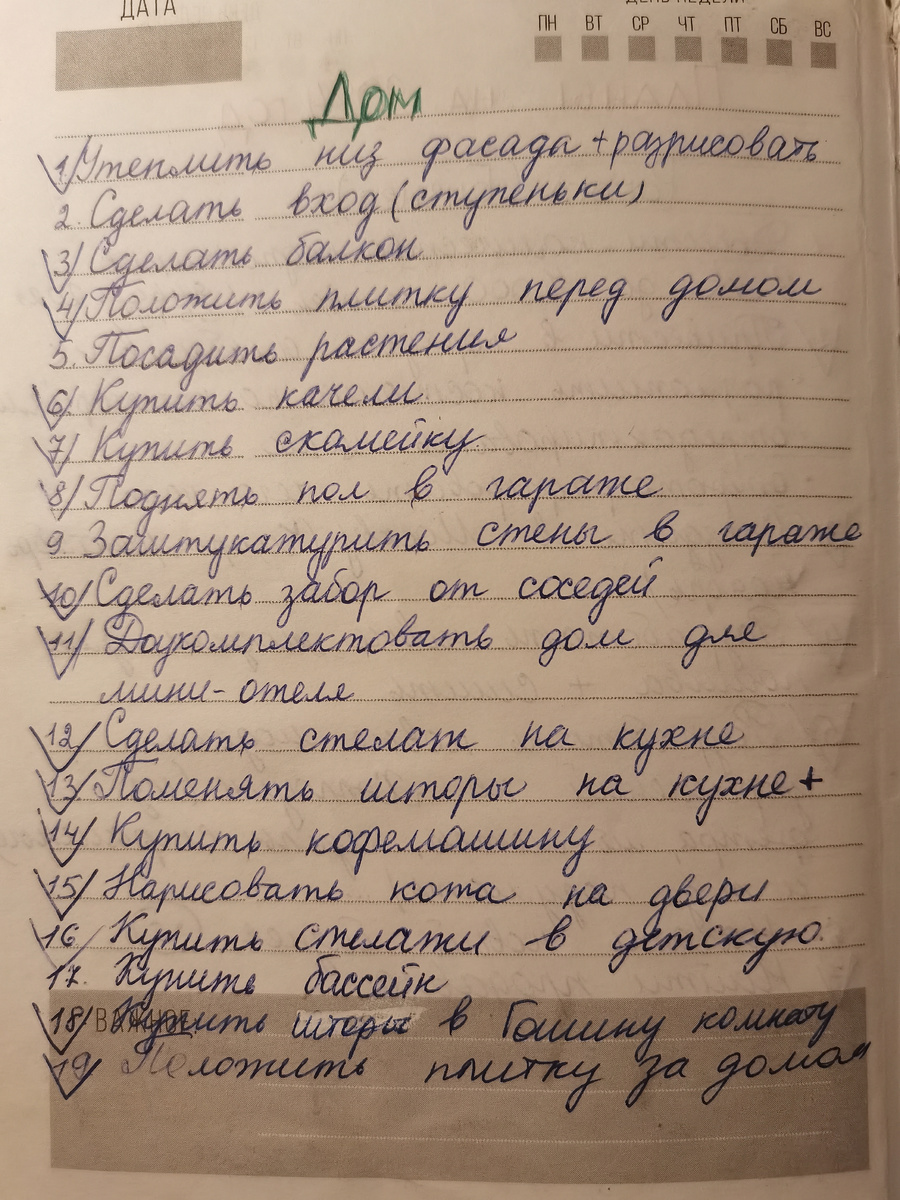 ДАТА
ДЕНЬ НЕДЕЛИ
ПН ВТ СР ЧТ ПТ СБ ВС
Дом
1. Утеплить низ фасада + разрисовать
2. Сделать вход (ступеньки)
3. Сделать балкон
4. Положить плитку перед домом
5. Посадить растения
6. Купить качели
7. Купить скамейку
8. Поднять пол в гараже
9. Заштукатурить стены в гараже
10. Сделать забор от соседей
11. Доукомплектовать дом для
мини-отеля
12. Сделать стелаж на кухне
13. Поменять шторы на кухне +
14. Купить кофемашину
15. Нарисовать кота на двери
16. Купить стелажи в детскую
17. Купить бассейн
ВАЖНОЕ
18. Купить шторы в Гошину комнату
19. Положить плитку за домом